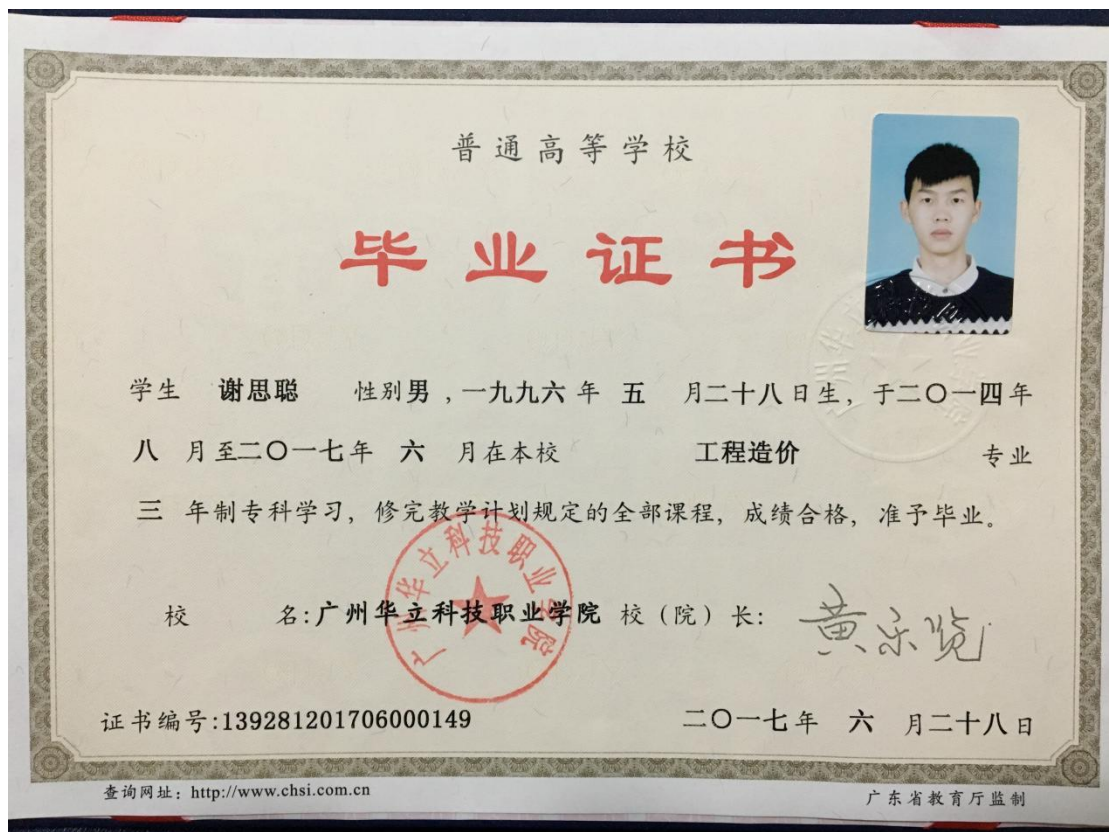 普通高等学校
毕业证书
学生 谢思聪 性别男,一九九六年 五 月二十八日生, 于二〇一四年
八 月至二〇一七年 六 月在本校 工程造价 专业
三 年制专科学习, 修完教学计划规定的全部课程, 成绩合格, 准予毕业。
广州华立科技职业学院
校 名:广州华立科技职业学院 校(院)长: 黄乐览
证书编号:139281201706000149 二〇一七年 六 月二十八日
查询网址: http://www.chsi.com.cn 广东省教育厅监制